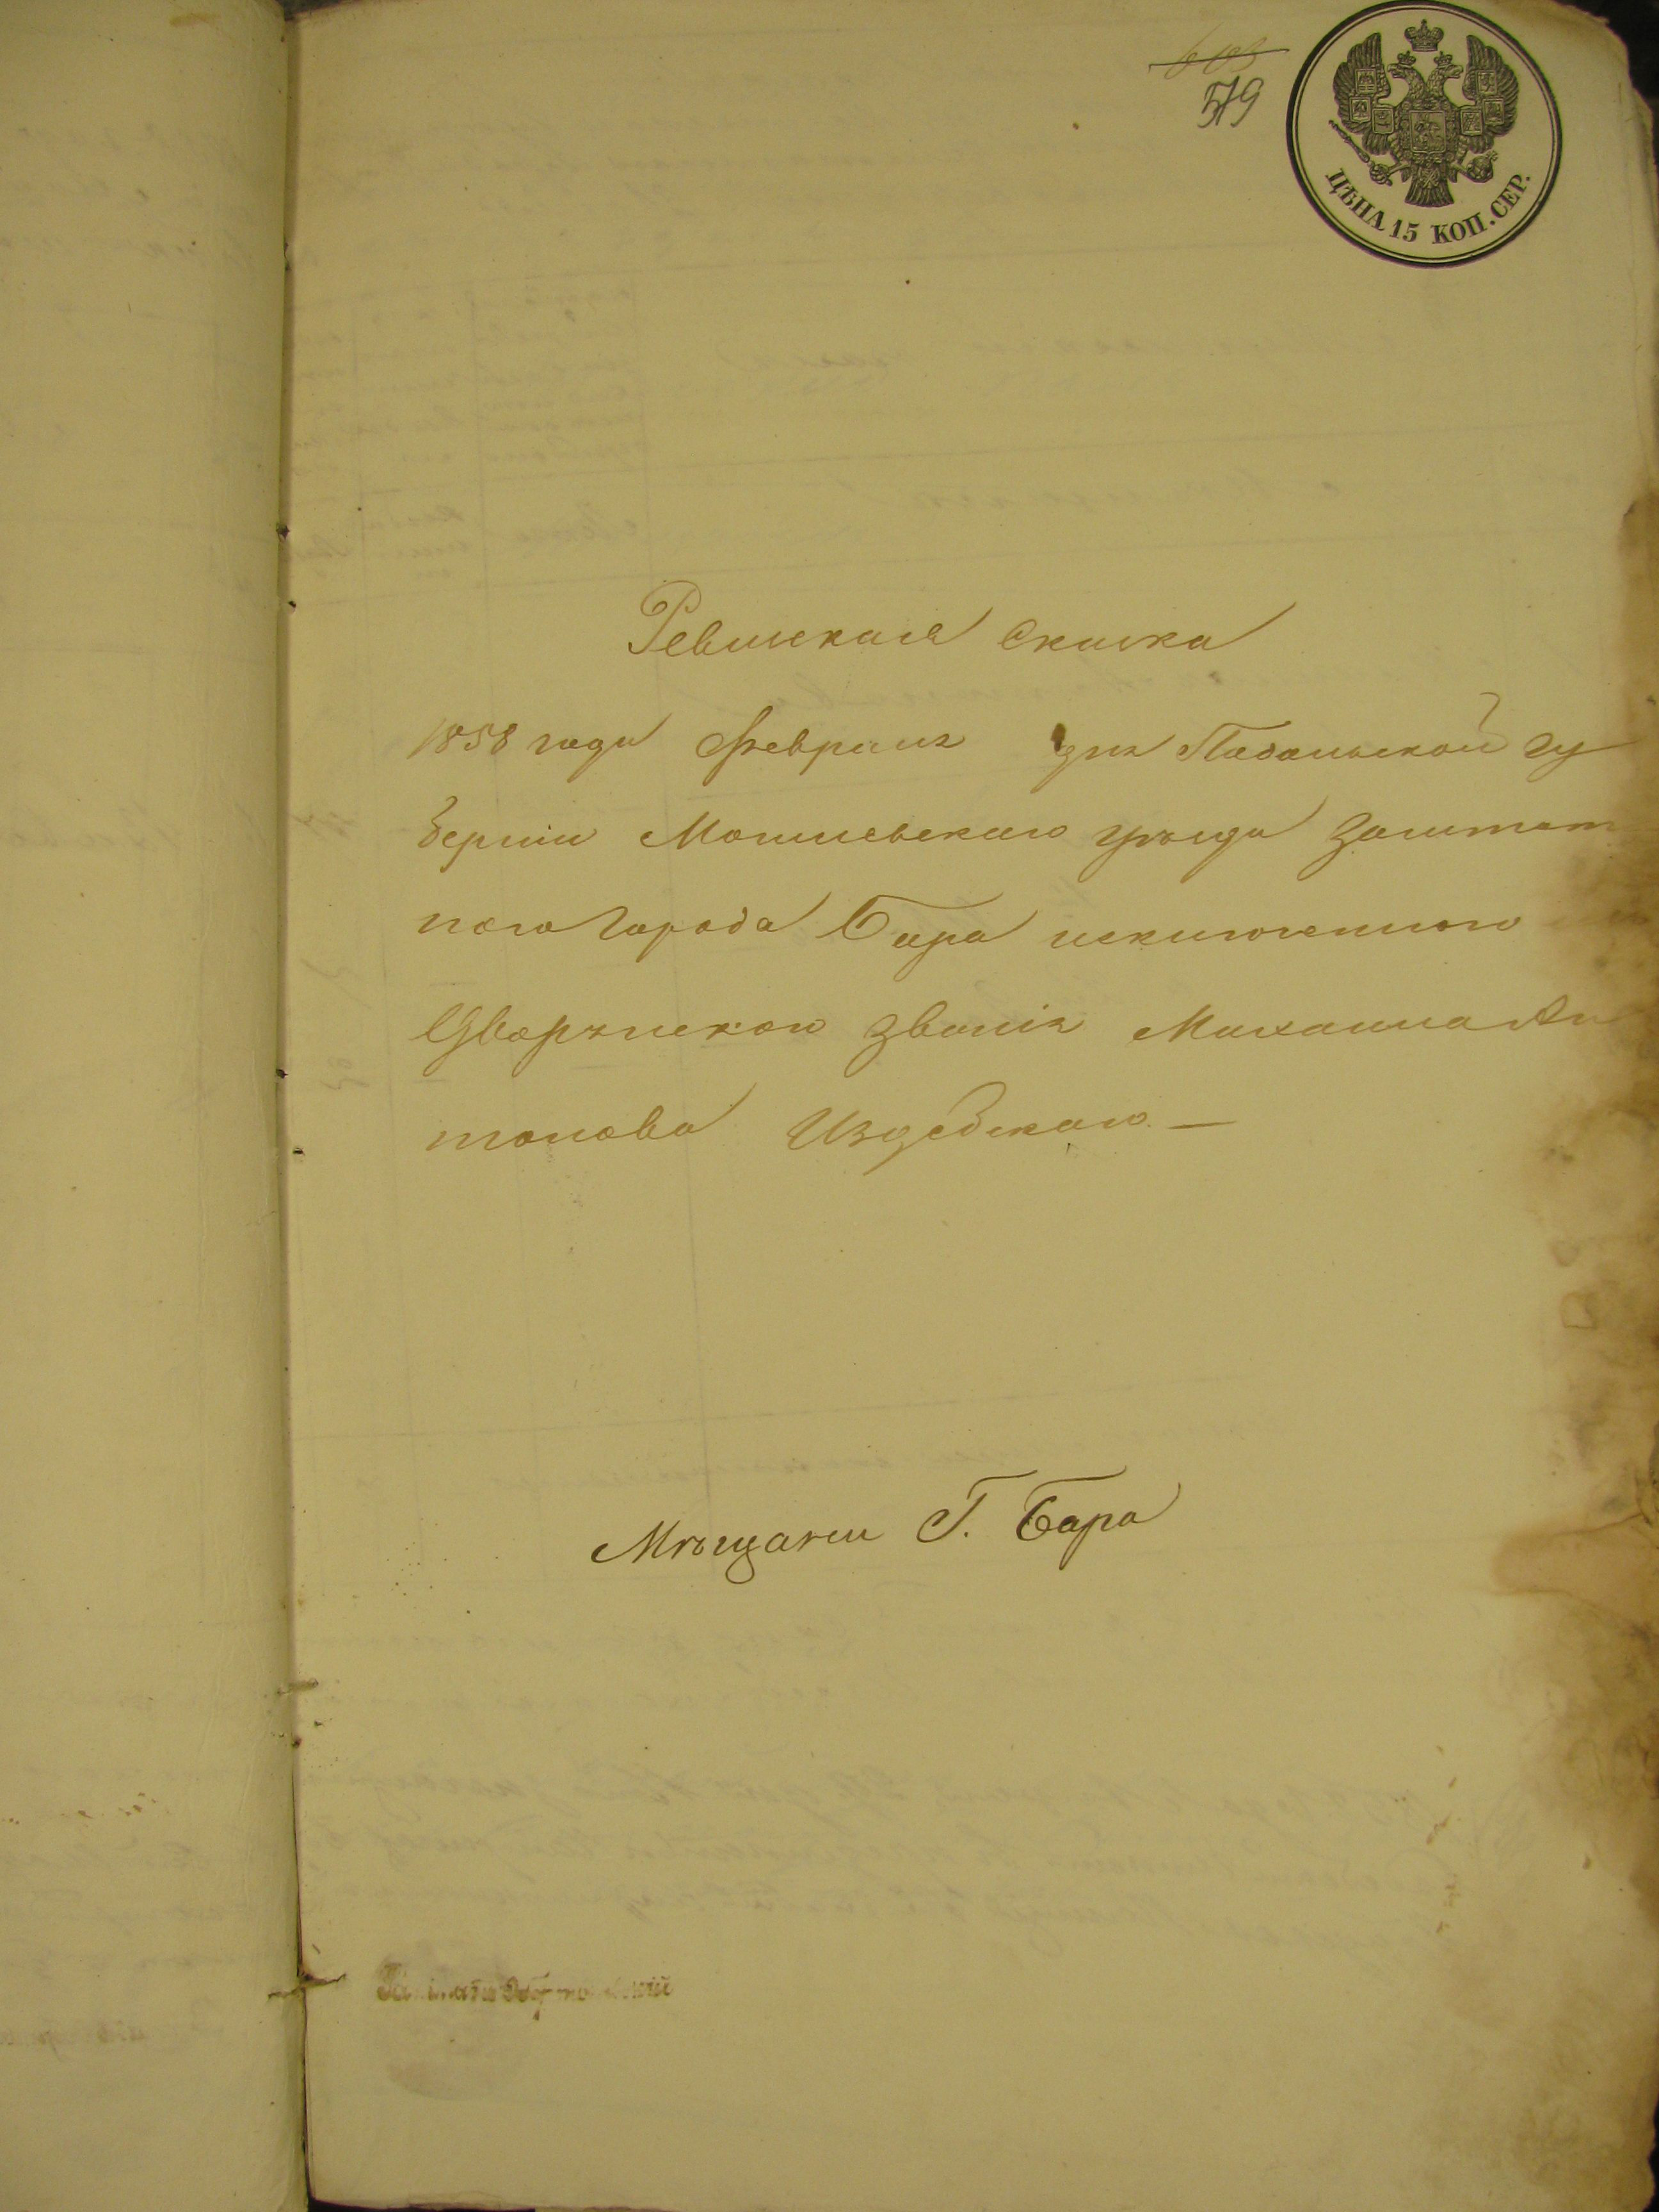 603
579
ЦѢНА 15 КОП. СЕР.
Ревизская Сказка
1858 года Февраля дня Подольской гу
берніи Могилевскаго уѣзда Заштат
наго Города Бара исключеннаго
Дворянскаго званія Михаила Ан
тонова Издебскаго —
Мѣщане Г. Бара